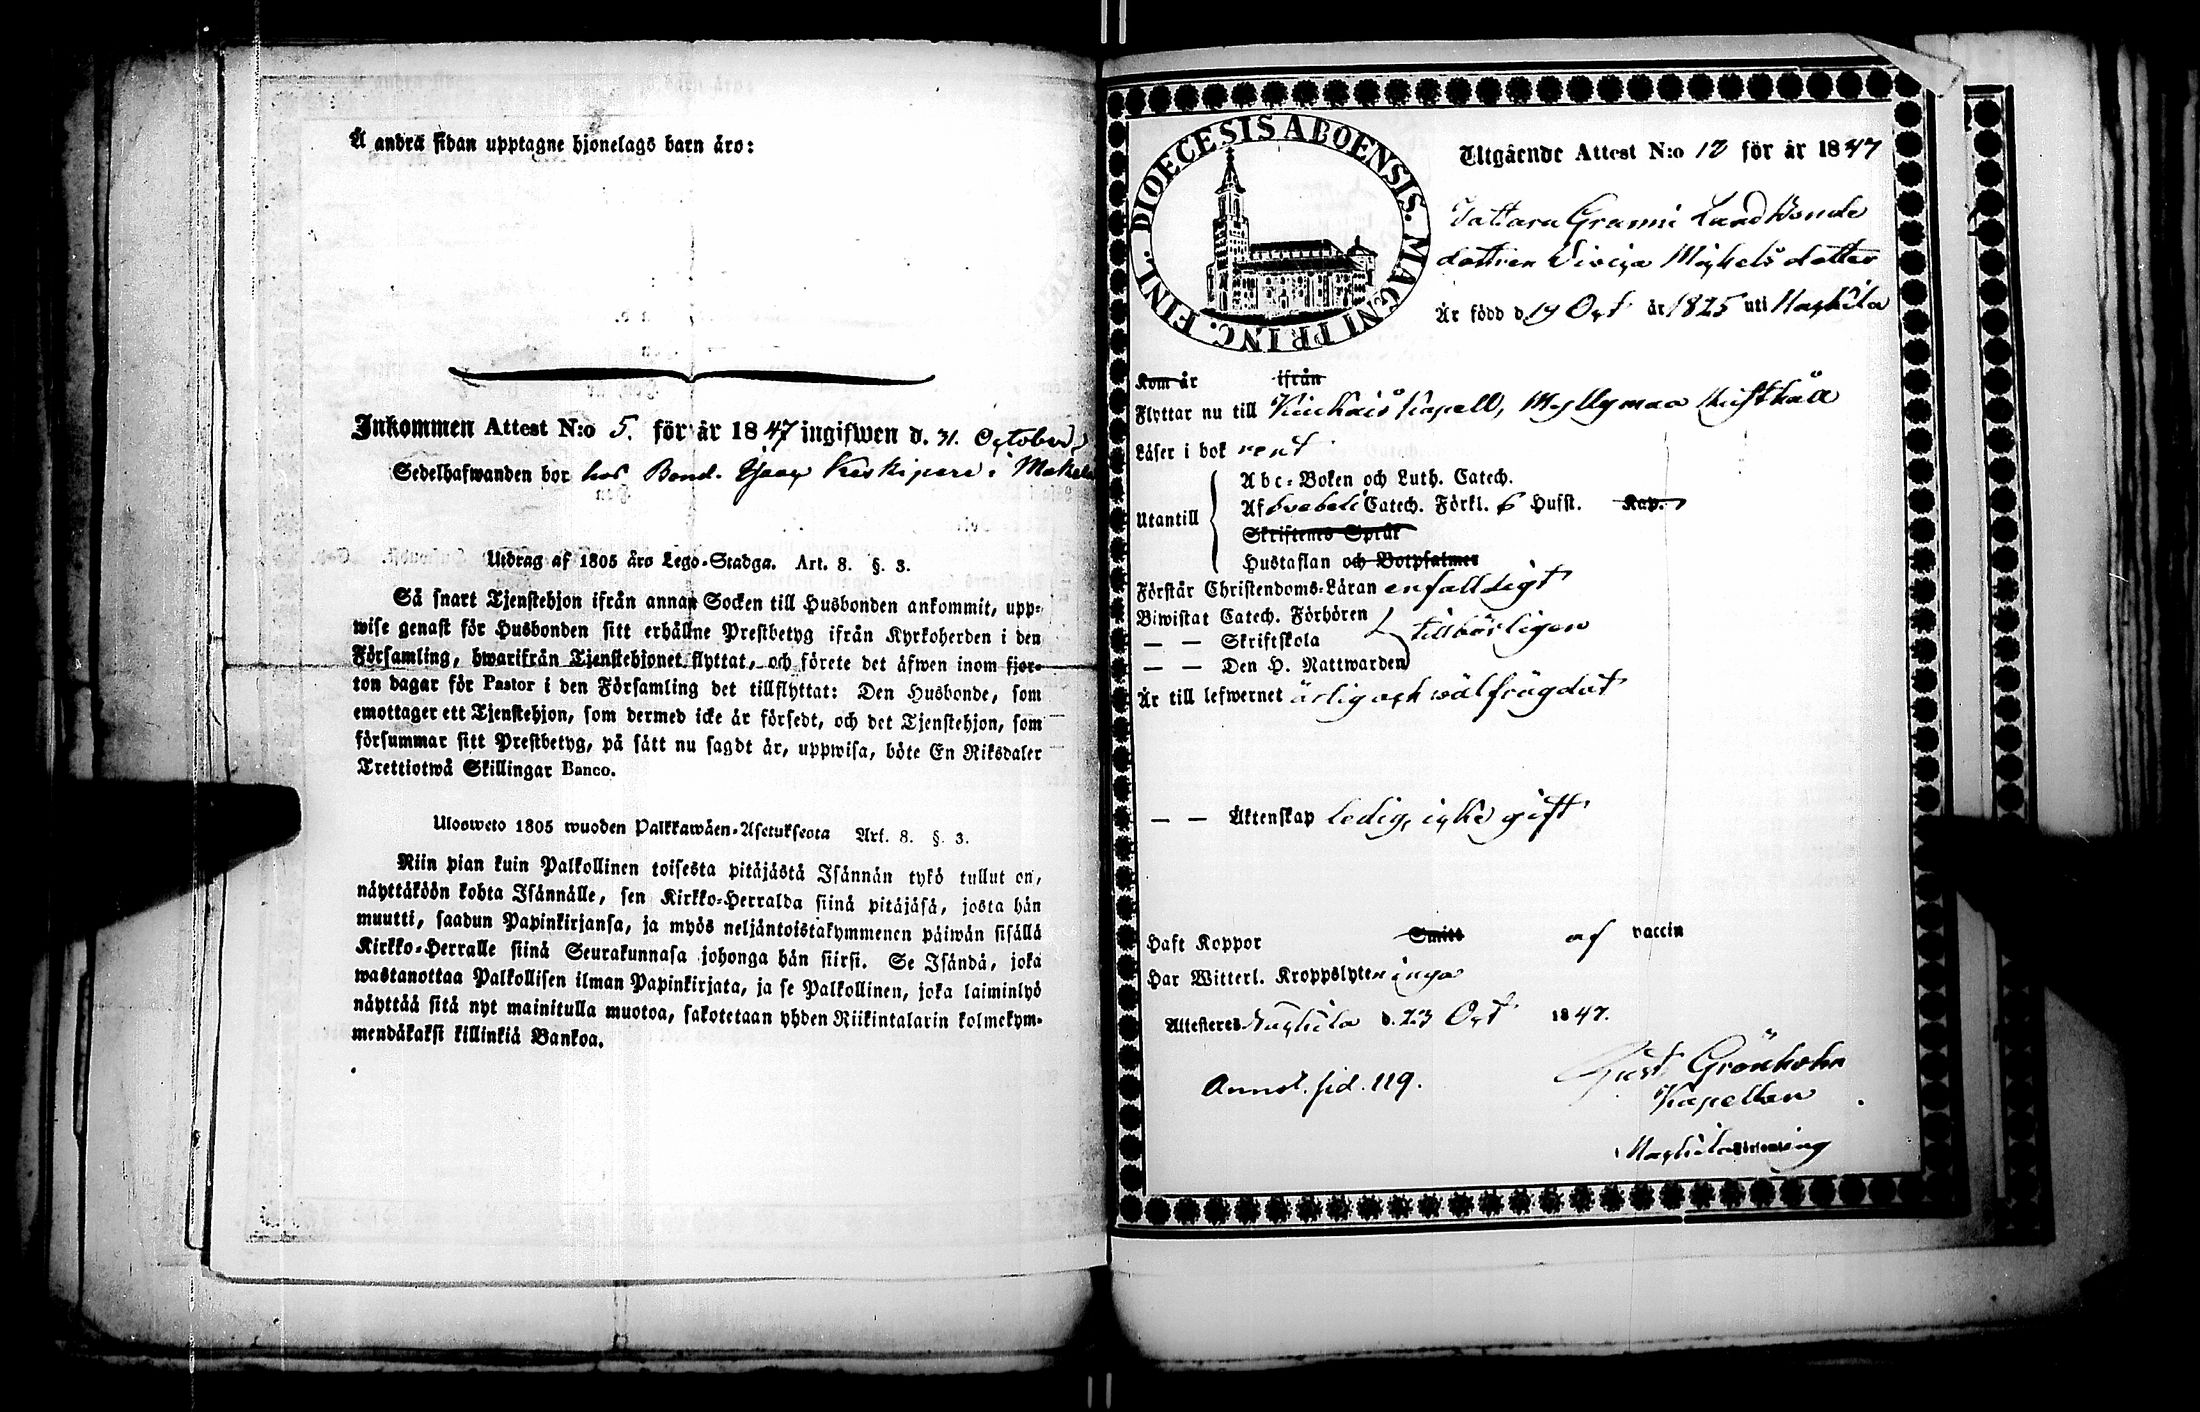 Å andra sidan upptagne hjonelags barn äro:
Inkommen Attest N:o 5. för år 1847 ingifwen d. 31. October
Sedelhafwanden bor hos Bond. Isaac Keskipere i
Utdrag af 1805 års Lego-Stadga. Art. 8. §. 3.
Så snart Tjenstehjon ifrån annan Socken till Husbonden ankommit, upp-
wise genast för Husbonden sitt erhållne Prestbetyg ifrån Kyrkoherden i den
Församling, hwarifrån Tjenstehjonet flyttat, och förete det äfwen inom fjor-
ton dagar för Pastor i den Församling det tillflyttat: Den Husbonde, som
emottager ett Tjenstehjon, som dermed icke är försedt, och det Tjenstehjon, som
försummar sitt Prestbetyg, på sätt nu sagdt är, uppwisa, böte En Riksdaler
Trettiotwå Skillingar Banco.
Ulosweto 1805 wuoden Palkkawäen-Asetuksesta Art. 8. §. 3.
Niin pian kuin Palkollinen toisesta pitäjästä Isännän tykö tullut on,
näyttäköön kohta Isännälle, sen Kirkko-Herralda siinä pitäjäsä, josta hän
muutti, saadun Papinkirjansa, ja myös neljäntoistakymmenen päiwän sisällä
Kirkko-Herralle siinä Seurakunnasa johonga hän siirsi. Se Isändä, joka
wastanottaa Palkollisen ilman Papinkirjata, ja se Palkollinen, joka laiminlyö
näyttää sitä nyt mainitulla muotoa, sakotetaan yhden Riikintalarin kolmekym-
mendäkaksi killinkiä Bankoa.
DIOECESIS ABOENSIS. MAGNI PRINC. FINL.
Utgående Attest N:o 12 för år 1847
Tattara Granni Landbonde
dottren Wivica Michelsdotter
Är född d 19 Oct år 1825 uti Haskila
Kom år ifrån
Flyttar nu till Kiukais Capell, Myllymaa Rusthåll
Läser i bok rent
Utantill
Abc-Boken och Luth. Catech.
Af Svebelii Catech. Förkl. 6 Hufst. Kap.
Skriftenes Språk
Hustaflan och Botpsalmer
Förstår Christendoms-Läran enfalldigt
Biwistat Catech. Förhören
— — Skriftskola tillbörligen
— — Den H. Nattwarden
Är till lefwernet ärlig och wälfrägdat
— — Äktenskap ledig, icke gift
Haft Koppor Smitt af vaccin
Har Witterl. Kroppslyten inga
Attesteras d. 23 Oct 1847.
Gust Grönholm
Kapellan
Annot. sid. 119.
Församling